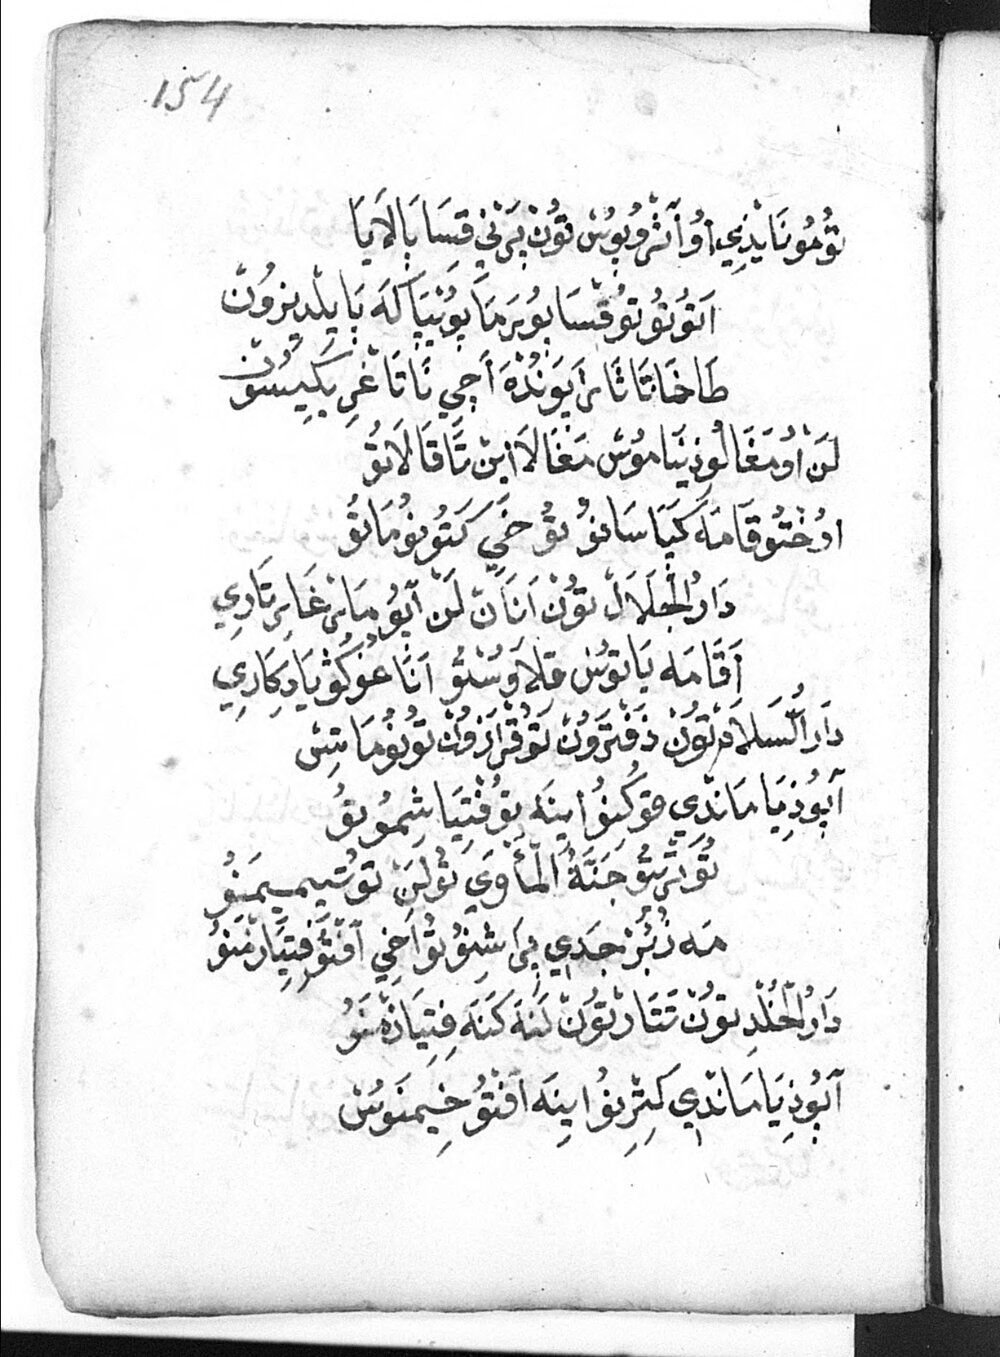 154
تُومُونَايذِي اُو آنثرُوبُوسْ تُونْ بَرنِي قِسَا بَالَايَا
اَتُوتُو تُو قِسَا بُورَمَا بُونِيَاكَه بَايلِديزُونْ
طَاخَاتَا ثَا مَرَايَونْدَه آجِي نَا تَاغرِيكِيسُونْ
لَنْ اُو مَغَالُوذِينَامُوسْ مَغَالَا اِينْ تَاقَالَاتُو
اوُختُو قَامَه كَيَا سَانُو تُو خَيِ كَتُوتُومَاتُو
دَارُ الْجَلَالْ تُونْ اَنَانْ لَنْ آبُو مَارغَارِيتَارِي
آقَامَه يَاتُوسْ قلَاوسْتُو آنَا غُوكُو يَادِكَارِي
دَارُ السَّلَامْ تُونْ ذَفْتَرُونْ تُو قْرَازُونْ تُوتُومَاتِسْ
آبُو ذِيَامَانْدِي قُوكِنُو اِينَه تُو فْتِيَاشِمُوتُو
تُو تْرِتُو جَنَّةُ الْمَأْوَي تُولَنْ تُوتِيمِيمَنُو
مَه زُبُرْجَدِي بِرَاشِنُو تُوآخِي آفْتُو فْتِيَازمَنُو
دَارُ الْخُلْدِ تُونْ تَتَارْتُونْ لَنَه كَنَه فِتِيَازمَنُو
آبُو ذِيَامَانْدِي كِتْرِنُو اِينَه آفْتُو خِيمَنُوسْ